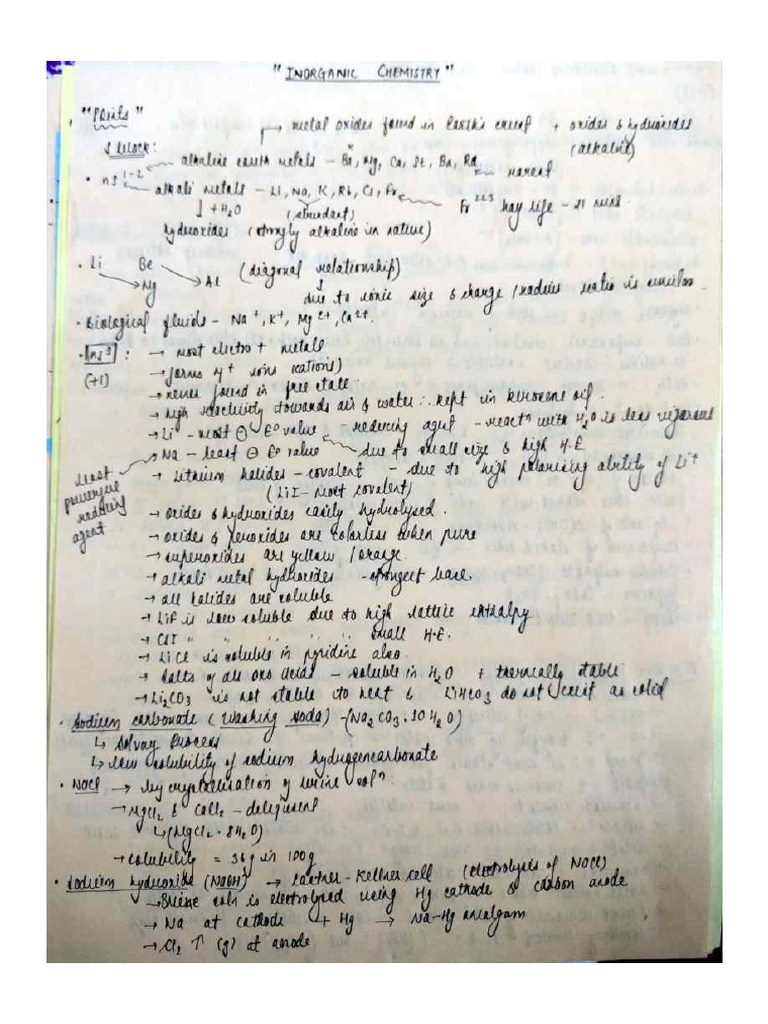 " INORGANIC CHEMISTRY "
" Points "
→ metal oxides found in Earth's crust + oxides & hydroxides
s block:
(alkaline)
alkaline earth metals - Be, Mg, Ca, St, Ba, Ra
rarest
• ns 1-2
alkali metals - Li, Na, K, Rb, Cs, Fr
Fr 223 hay life - 21 mins.
↓ + H2O (abundant)
hydroxides (strongly alkaline in nature)
• Li Be (diagonal relationship)
Mg Al
due to ionic size & charge / radius ratio is similar
• Biological fluids - Na+, K+, Mg2+, Ca2+.
• ns1 : → most electro + metals
(+1) → forms M+ ions (cations)
→ never found in free state
→ high reactivity towards air & water ∴ kept in kerosene oil.
→ Li - most ⊖ E° value - reducing agent - reactn with H2O is less vigorous
→ Na - least ⊖ E° value due to small size & high H.E
least powerful reducing agent
→ Lithium halides - covalent - due to high polarising ability of Li+
(LiI - most covalent)
→ oxides & hydroxides easily hydrolysed.
→ oxides & peroxides are colorless when pure
→ superoxides are yellow / orange.
→ alkali metal hydroxides - strongest base.
→ all halides are soluble
→ LiF is low soluble due to high lattice enthalpy
→ CsI " " " " " small H.E.
→ LiCl is soluble in pyridine also.
→ salts of all oxo acids - soluble in H2O + thermally stable
→ Li2CO3 is not stable to heat & LiHCO3 do not exist as solid
• Sodium carbonate (Washing Soda) - (Na2CO3.10H2O)
↳ Solvay Process
↳ low solubility of sodium hydrogencarbonate
• NaCl → by crystallisation of brine soln.
→ MgCl2 & CaCl2 - deliquesent
↳ (MgCl2.8H2O)
→ solubility = 36g in 100g
• Sodium hydroxide (NaOH) → Castner-Kellner cell (electrolysis of NaCl)
→ Brine soln is electrolysed using Hg cathode & carbon anode
→ Na at cathode + Hg → Na-Hg amalgam
→ Cl2 ↑ (g) at anode